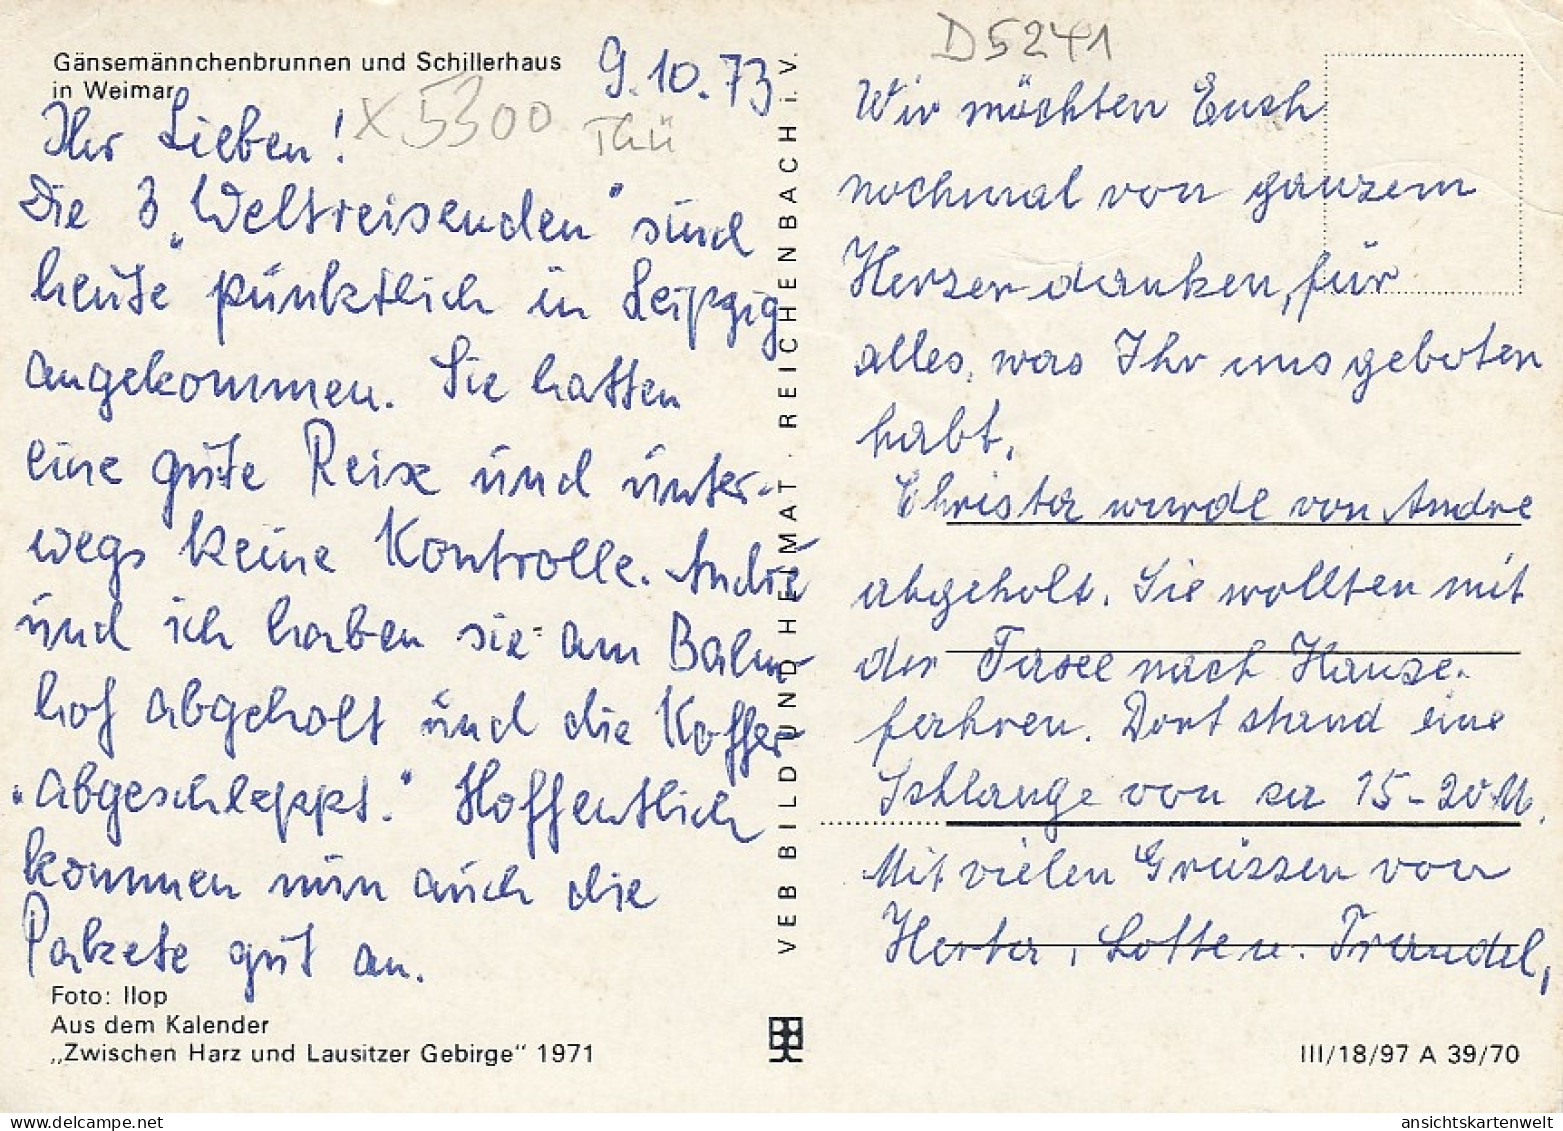 Gänsemännchenbrunnen und Schillerhaus
in Weimar
9.10.73
x 5300
Thü
Ihr Lieben!
Die 3 „Weltreisenden" sind
heute pünktlich in Leipzig
angekommen. Sie hatten
eine gute Reise und unter-
wegs keine Kontrolle. André
und ich haben sie am Bahn-
hof abgeholt und die Koffer
„abgeschleppt." Hoffentlich
kommen nun auch die
Pakete gut an.
Foto: Ilop
Aus dem Kalender
„Zwischen Harz und Lausitzer Gebirge" 1971
VEB BILD UND HEIMAT · REICHENBACH i. V.
D5241
Wir möchten Euch
nochmal von ganzem
Herzen danken, für
alles, was Ihr uns geboten
habt.
Christa wurde von Andre
abgeholt. Sie wollten mit
der Taxe nach Hause
fahren. Dort stand eine
Schlange von ca 15-20 M.
Mit vielen Grüssen von
Herta, Lotte u. Traudel,
III/18/97 A 39/70
ansichtskartenwelt